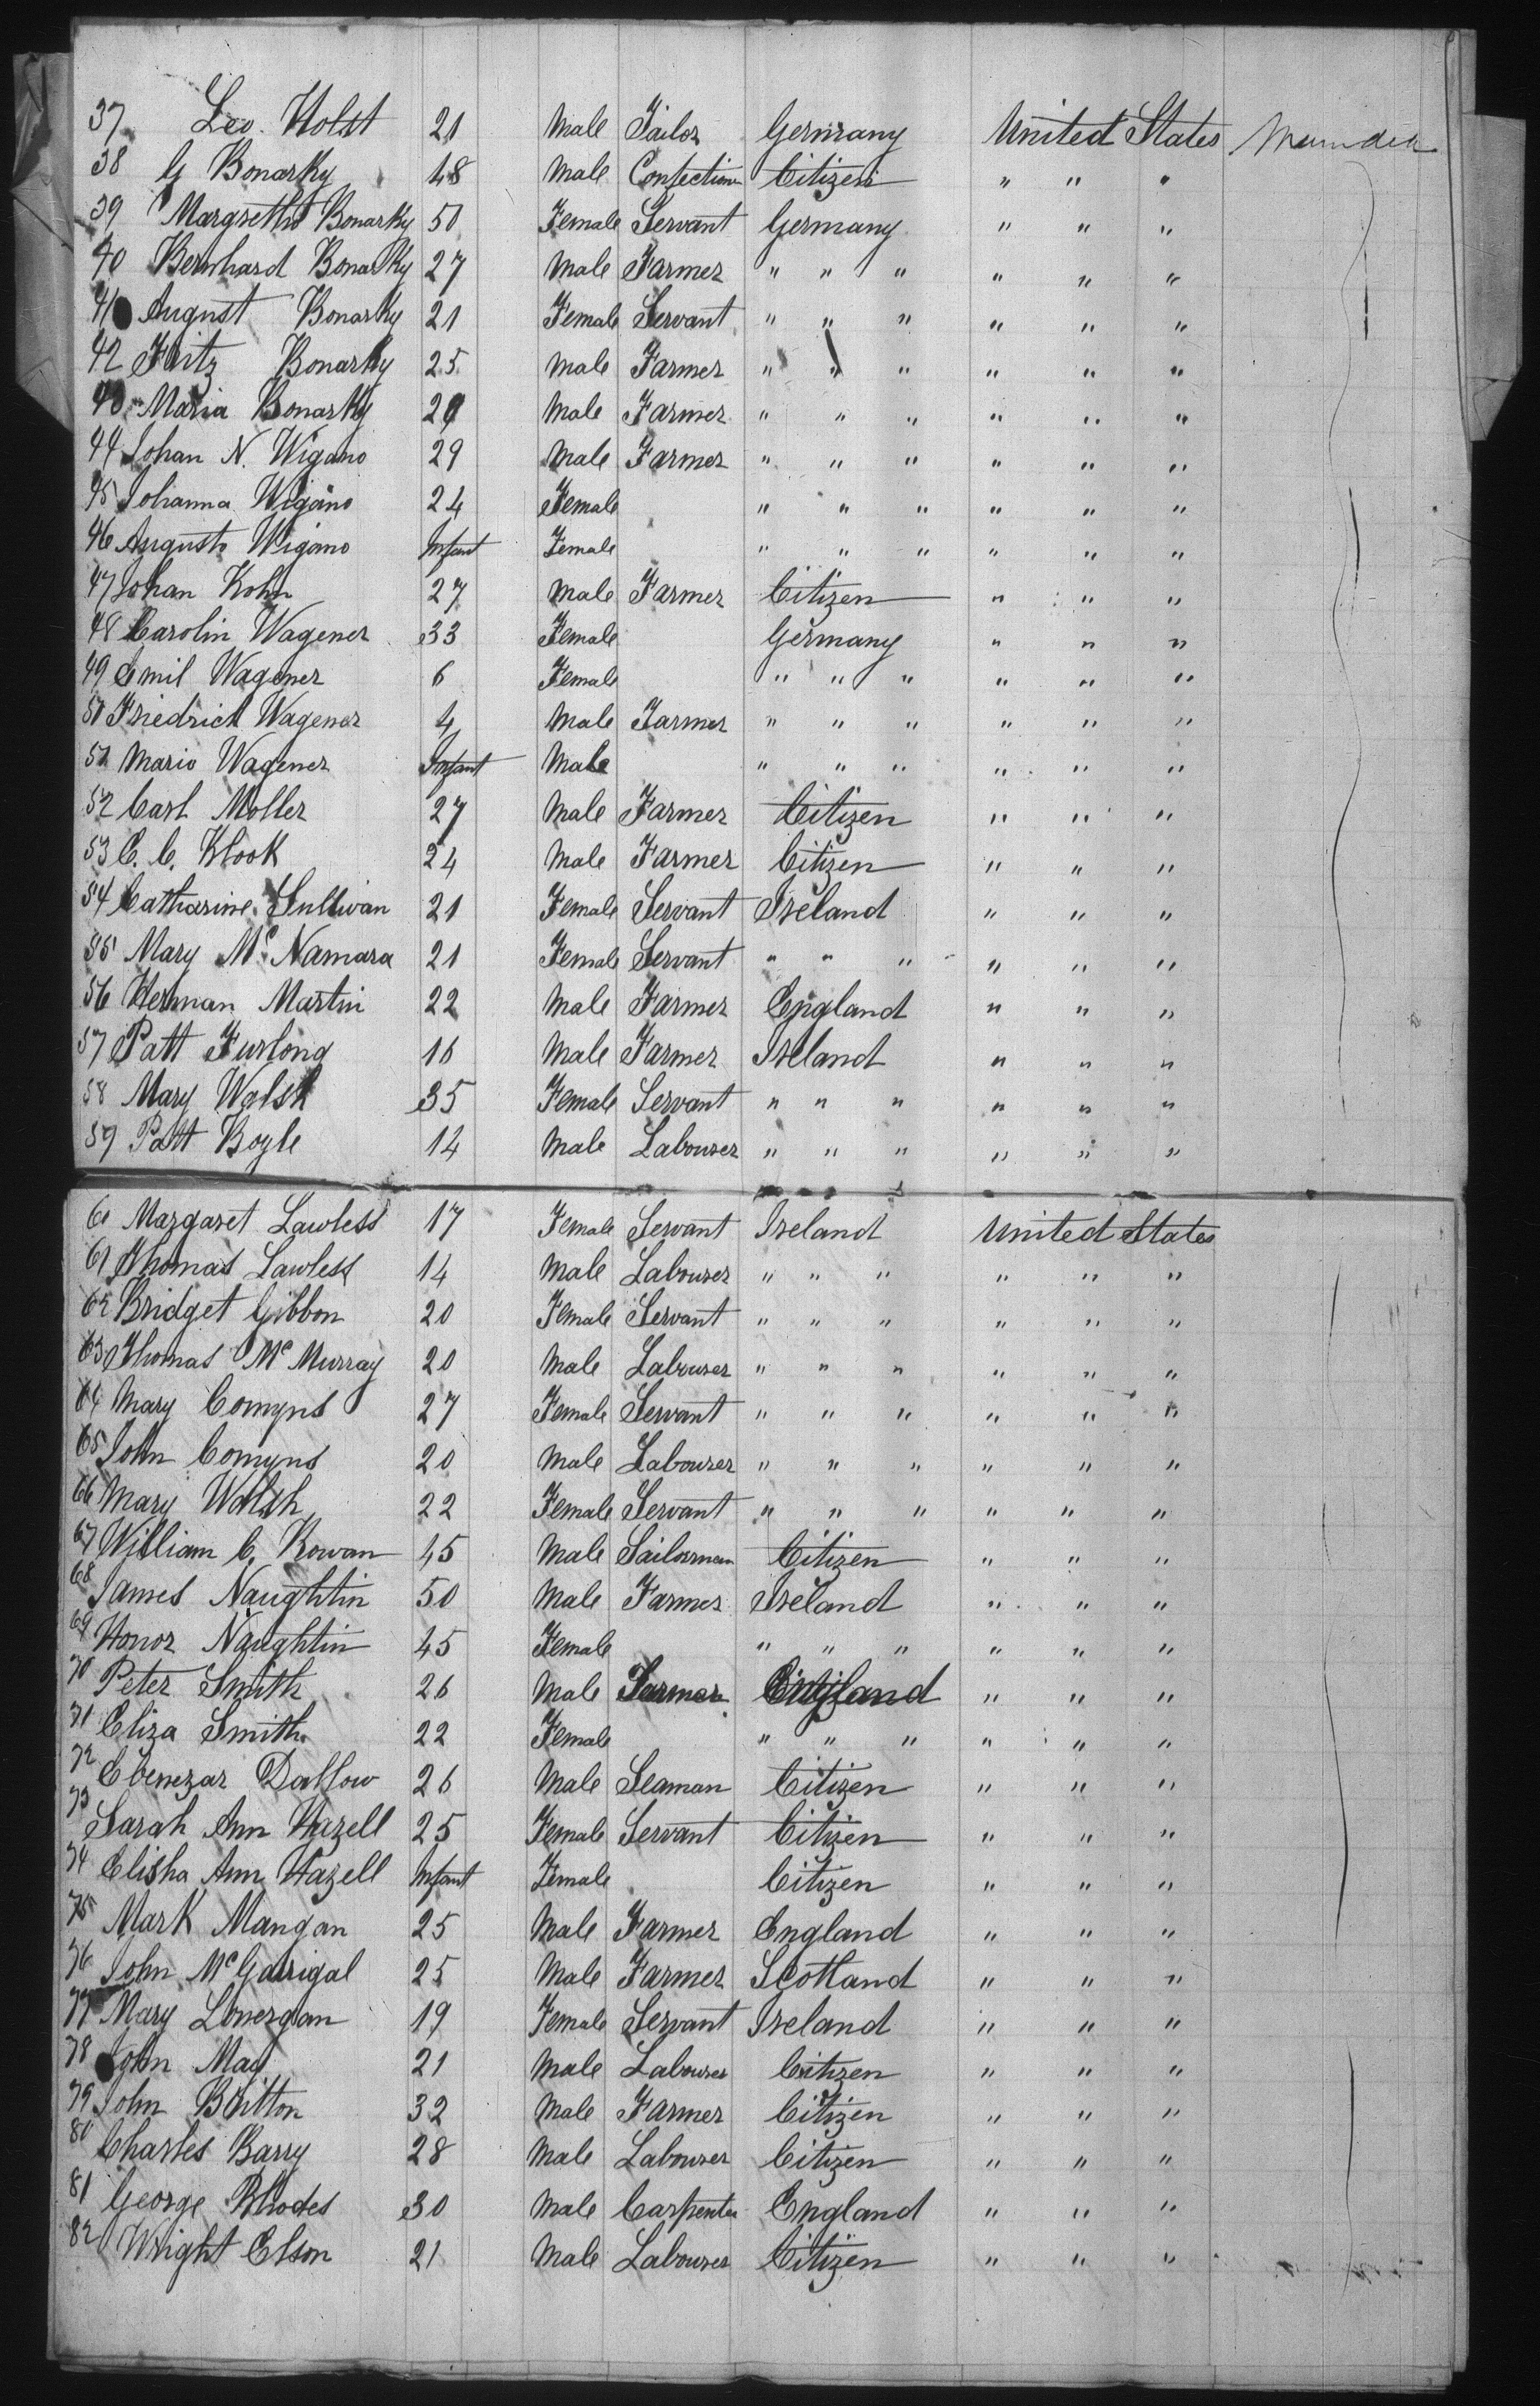 37 Leo. Holst 21 Male Tailor Germany United States
38 G Bonarky 48 Male Confection Citizen " " "
39 Margreth Bonarky 50 Female Servant Germany " " "
40 Bernhard Bonarky 27 Male Farmer " " " " " "
41 August Bonarky 21 Female Servant " " " " " "
42 Fritz Bonarky 25 Male Farmer " " " " " "
43 Maria Bonarky Male Farmer " " " " " "
44 Johan N. Wigano 29 Male Farmer " " " " " "
45 Johanna Wigano 24 Female " " " " " "
46 Auguste Wigano Infant Female " " " " " "
47 Johan Kohn 27 Male Farmer Citizen " " "
48 Carolin Wagener 33 Female Germany " " "
49 Emil Wagener 6 Female " " " " " "
50 Friedrich Wagener 4 Male Farmer " " " " " "
51 Mario Wagener Infant Male " " " " " "
52 Carl Moller 27 Male Farmer Citizen " " "
53 C. C. Klook 24 Male Farmer Citizen " " "
54 Catharine Sullivan 21 Female Servant Ireland " " "
55 Mary Mc Namara 21 Female Servant " " " " " "
56 Herman Martin 22 Male Farmer England " " "
57 Patt Furlong 16 Male Farmer Ireland " " "
58 Mary Walsh 35 Female Servant " " " " " "
59 Patt Boyle 14 Male Labourer " " " " " "
60 Margaret Lawless 17 Female Servant Ireland United States
61 Thomas Lawless 14 Male Labourer " " " " " "
62 Bridget Gibbon 20 Female Servant " " " " " "
63 Thomas Mc Murray 20 Male Labourer " " " " " "
64 Mary Comyns 27 Female Servant " " " " " "
65 John Comyns 20 Male Labourer " " " " " "
66 Mary Walsh 22 Female Servant " " " " " "
67 William C. Rowan 45 Male Sailorman Citizen " " "
68 James Naughtin 50 Male Farmer Ireland " " "
69 Honor Naughtin 45 Female " " " " " "
70 Peter Smith 26 Male Farmer England " " "
71 Eliza Smith 22 Female " " " " " "
72 Ebenezar Dallow 26 Male Seaman Citizen " " "
73 Sarah Ann Hazell 25 Female Servant Citizen " " "
74 Elisha Ann Hazell Infant Female Citizen " " "
75 Mark Mangan 25 Male Farmer England " " "
76 John Mc Garrigal 25 Male Farmer Scotland " " "
77 Mary Lonergan 19 Female Servant Ireland " " "
78 John May 21 Male Labourer Citizen " " "
79 John Britton 32 Male Farmer Citizen " " "
80 Charles Barry 28 Male Labourer Citizen " " "
81 George Rhodes 30 Male Carpenter England " " "
82 Wright Elson 21 Male Labourer Citizen " " "